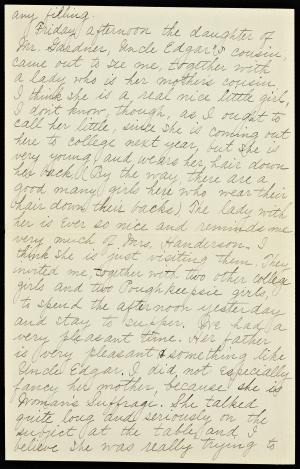 any filling.
Friday afternoon the daughter of
Mr. Gardner, Uncle Edgar's cousin,
came out to see me, together with
a lady who is her mother's cousin.
I think she is a real nice little girl,
I don't know, though, as I ought to
call her little, since she is coming out
here to college next year, but she is
very young and wears her hair down
her back. (By the way, there are a
good many girls here who wear their
hair down their backs) The lady with
her is ever so nice and reminds me
very much of Mrs. Handerson. I
think she is just visiting them. They
invited me together with two other college
girls and two Poughkeepsie girls,
to spend the afternoon yesterday
and stay to supper. I've had a
very pleasant time. Her father
is very pleasant & something like
Uncle Edgar. I did not especially
fancy her mother because she is
Woman's Suffrage. She talked
quite long and seriously on the
subject at the table and I
believe she was really trying to